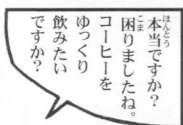 本当ですか？
困りましたね。
コーヒーを
ゆっくり
飲みたい
ですか？